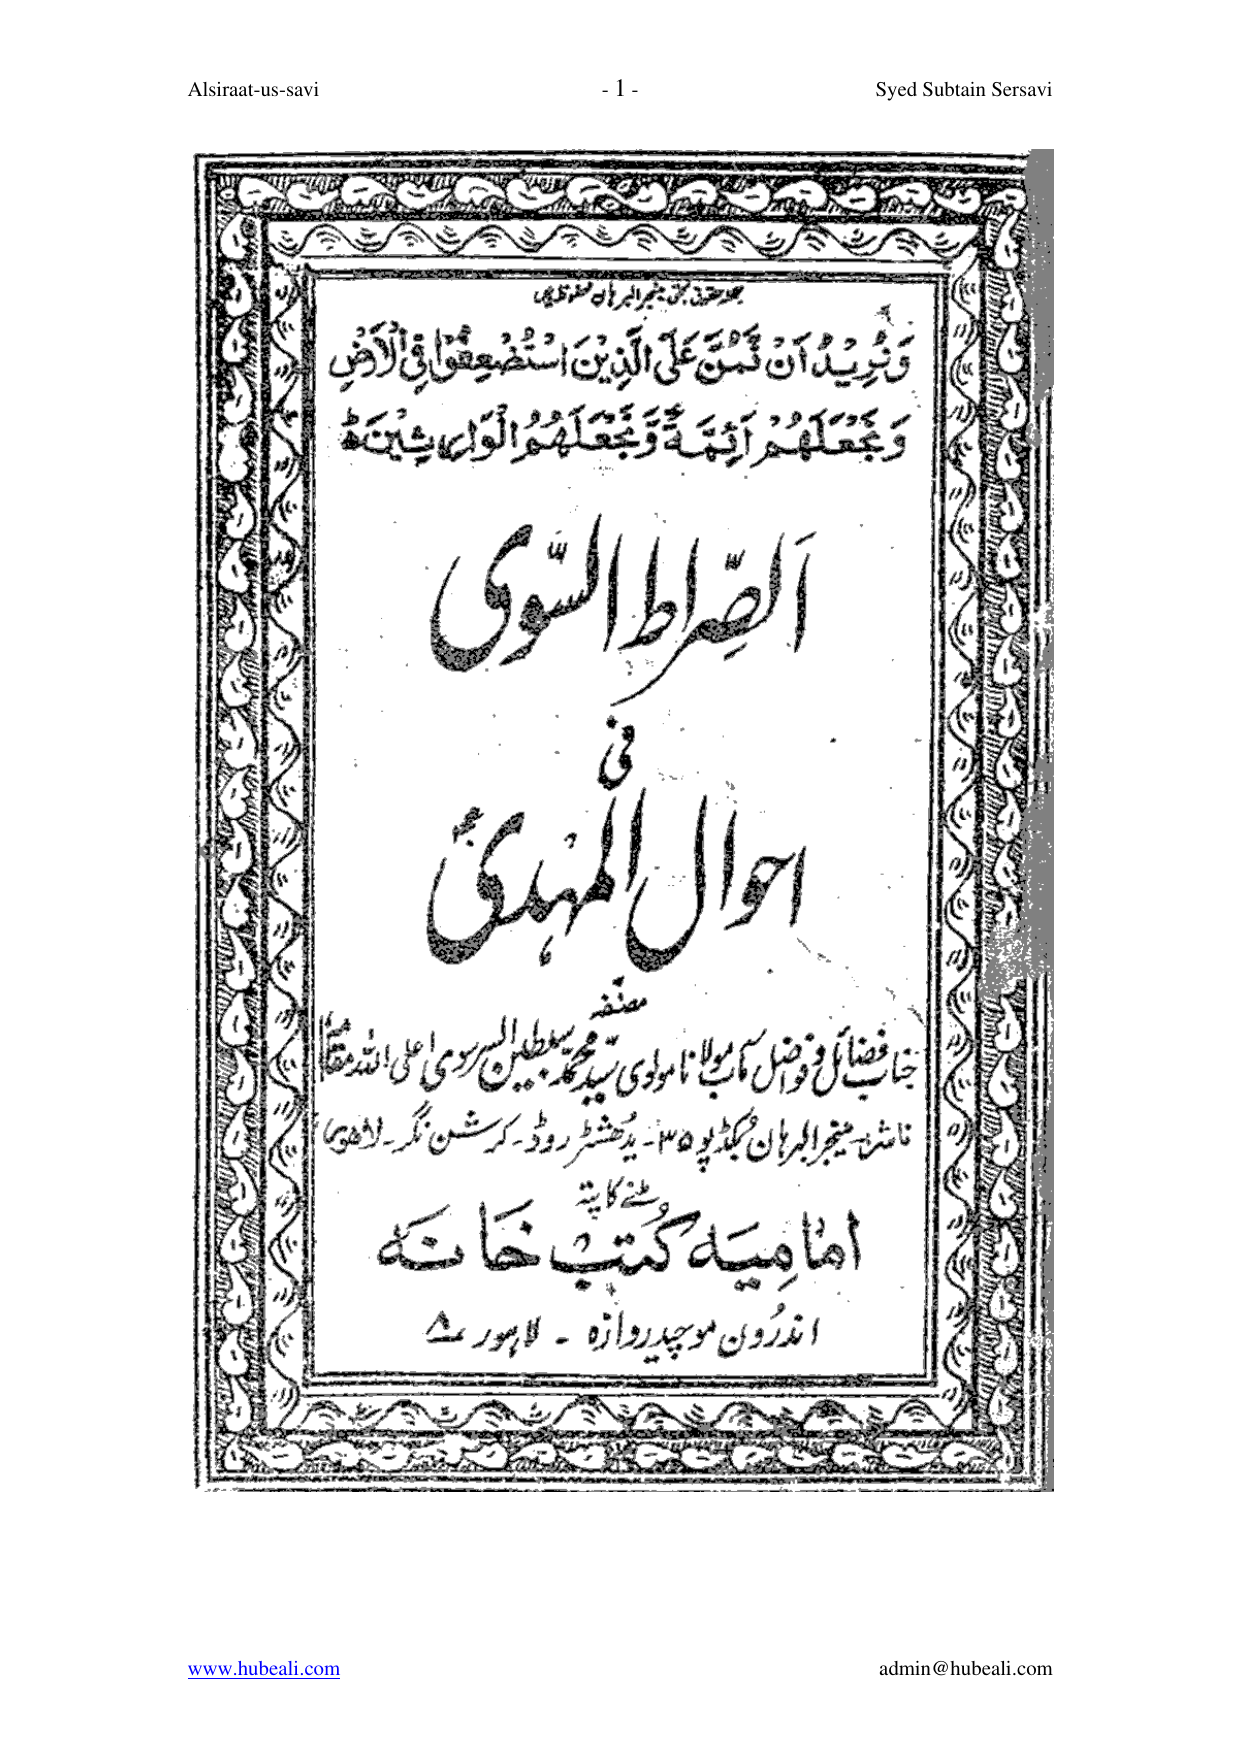 Alsiraat-us-savi - 1 - Syed Subtain Sersavi
جملہ حقوق بحق منیجر البرہان محفوظ ہیں
وَنُرِيدُ اَنْ نَّمُنَّ عَلَى الَّذِيْنَ اسْتُضْعِفُوْا فِي الْاَرْضِ
وَنَجْعَلَهُمْ اَئِمَّةً وَّنَجْعَلَهُمُ الْوَارِثِيْنَ ط
اَلصِّراط السَّوی
فی
احوال المہدیؑ
مصنّفہ
جناب فضائل و فواضل مآب مولانا مولوی سیّد محمّد سبطین السرسوی اعلی اللہ مقامہٗ
ناشر۔ منیجر البرہان بُکڈپو ۳۵۔ یُدھشٹر روڈ۔ کرشن نگر۔ لاہور
ملنے کا پتہ
امامیہ کتب خانہ
اندرُون موچیدروازہ ۔ لاہور ۸
www.hubeali.com admin@hubeali.com